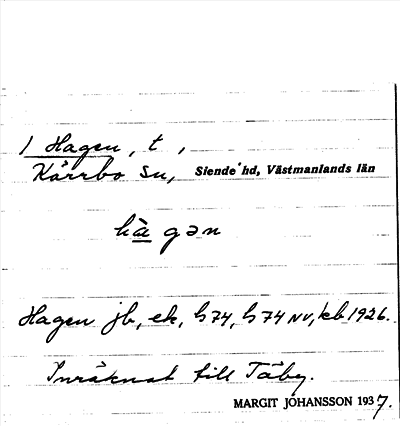 1 Hagen, t,
Kärrbo sn, Siende hd, Västmanlands län
hà gən
Hagen jb, ek, h 74, h 74 NV, kb 1926.
Inräknat till Täby.
MARGIT JOHANSSON 1937.